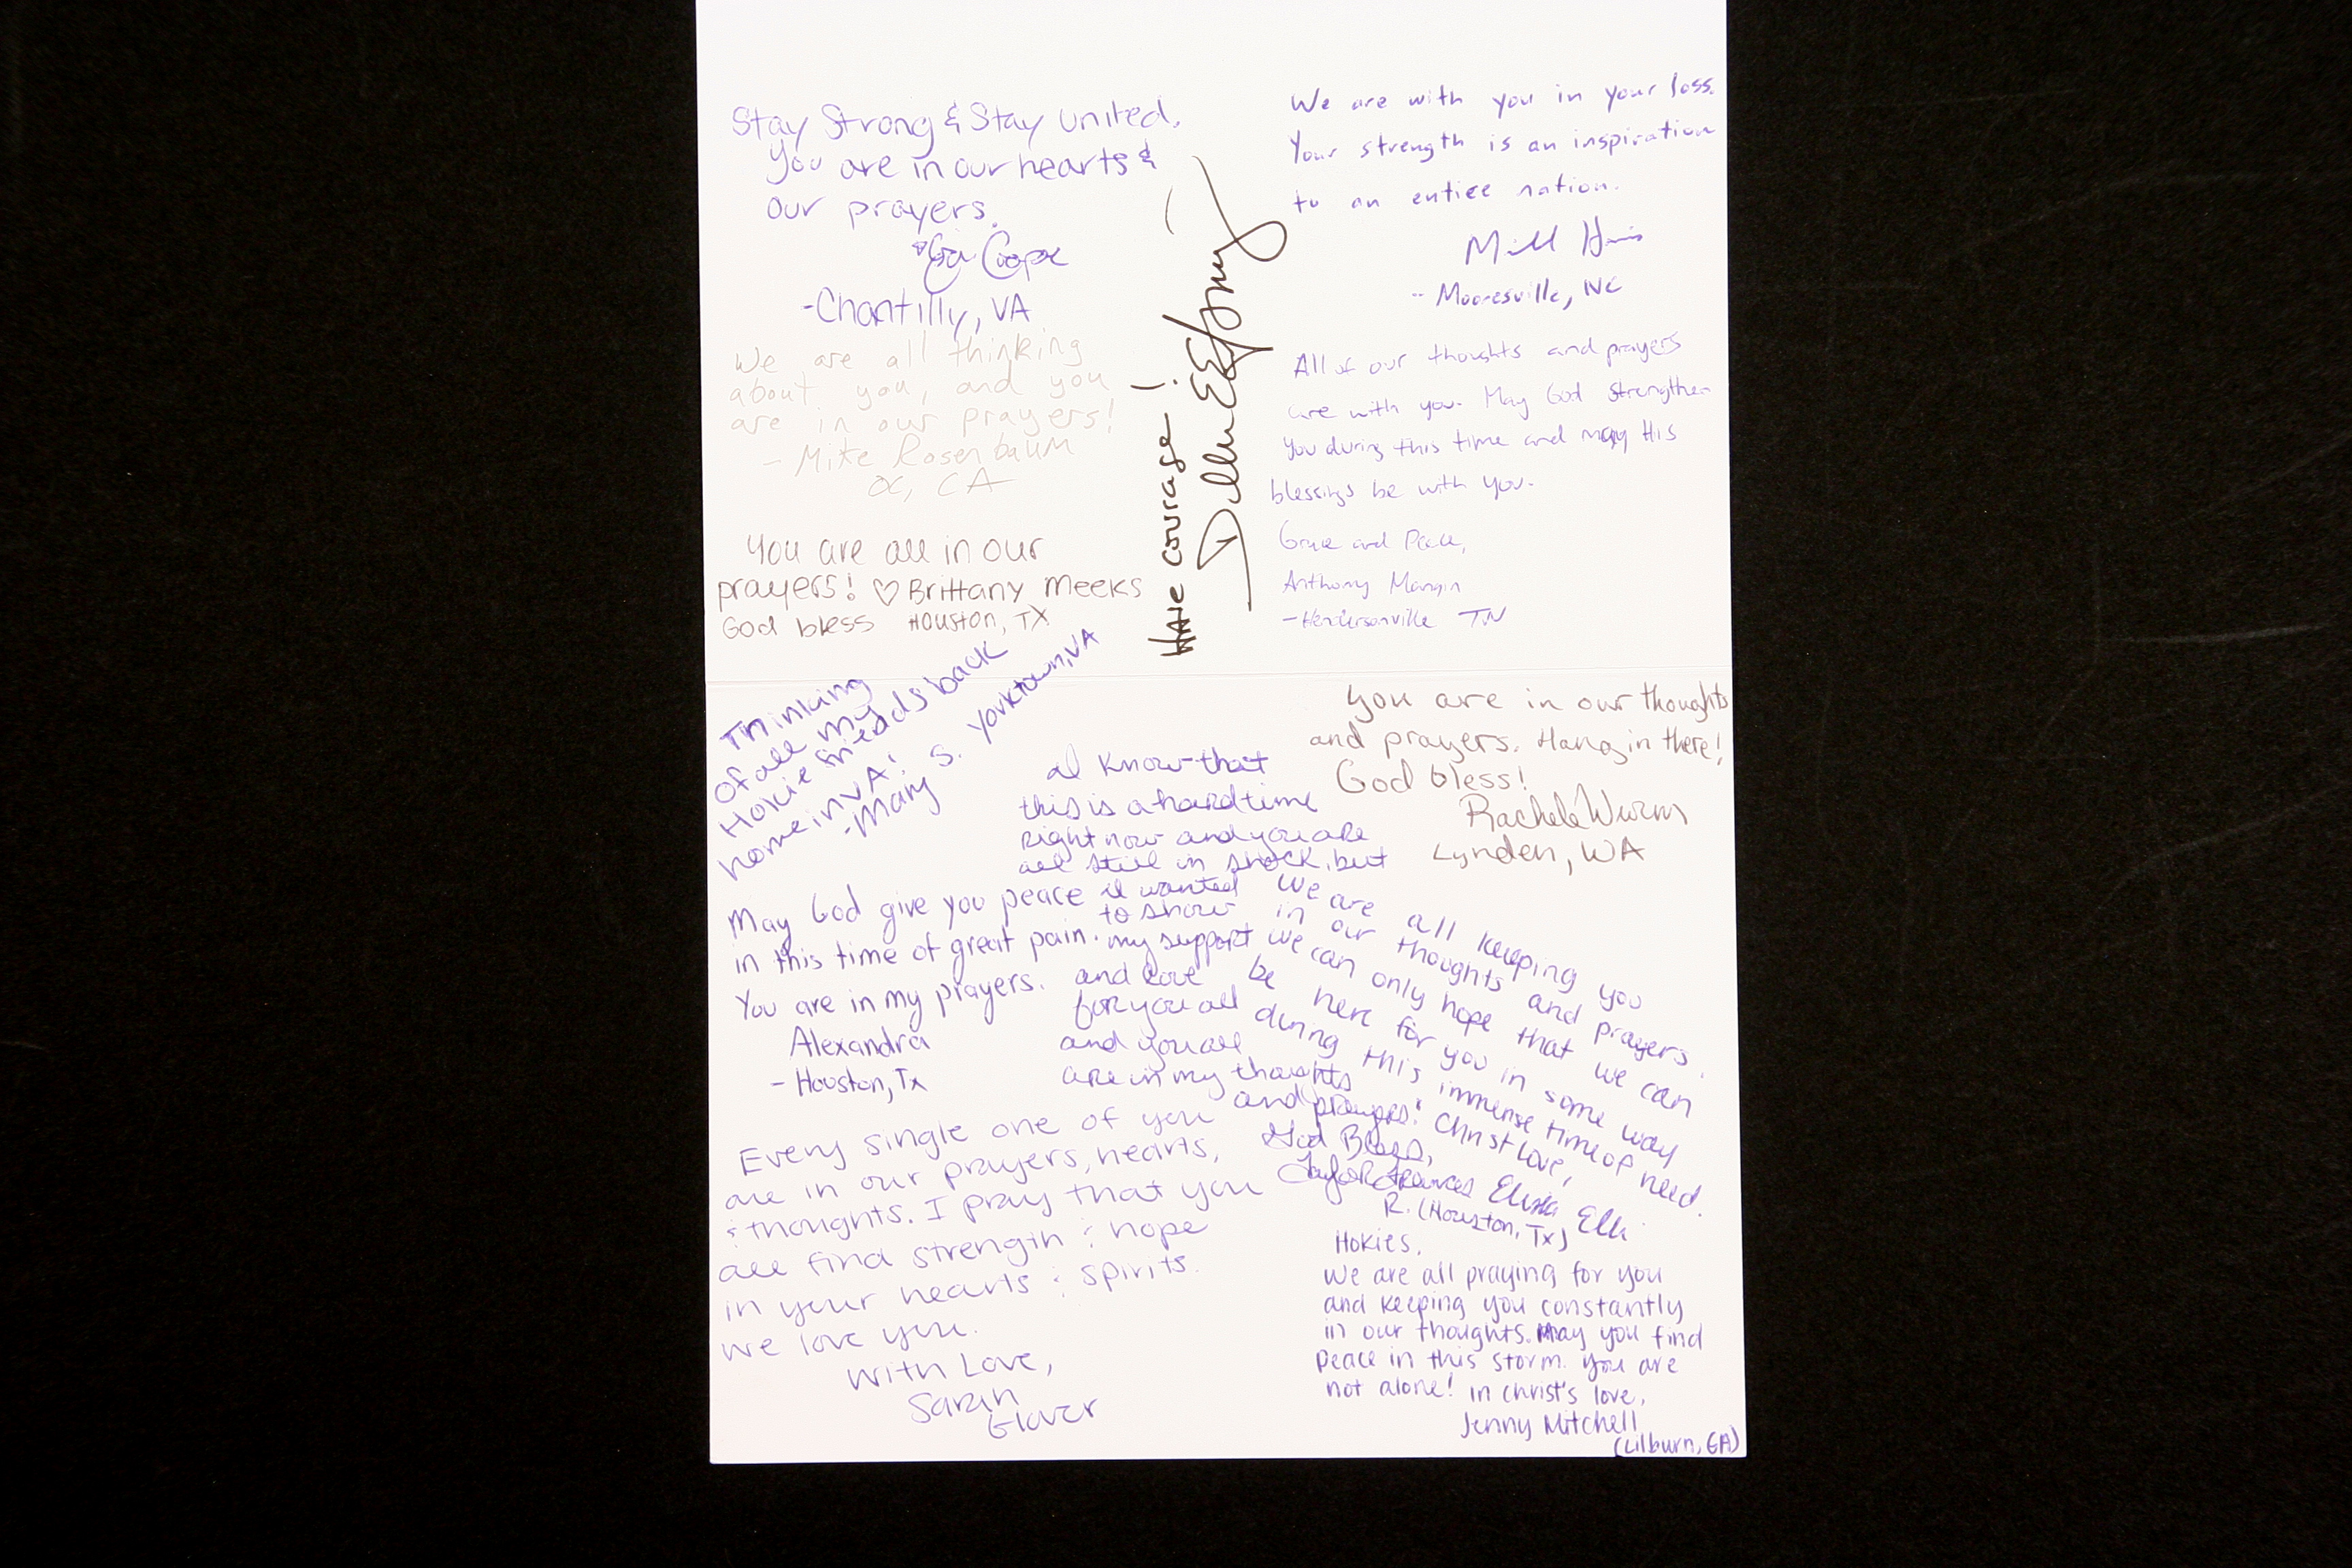 Stay Strong & Stay United,
You are in our hearts &
our prayers.
-Chantilly, VA
We are all thinking
about you, and you
are in our prayers!
- Mike Rosenbaum
OC, CA
You are all in our
prayers! ♡ Brittany Meeks
God bless Houston, TX
Have courage!
We are with you in your loss.
Your strength is an inspiration
to an entire nation.
- Mooresville, NC
All of our thoughts and prayers
are with you. May God strengthen
you during this time and may His
blessings be with you.
Grace and Peace,
Anthony
- Hendersonville TN
Thinking
of all my
Hokie friends back
home in VA!
- Mary S. Yorktown, VA
I know that
this is a hard time
right now and you are
all still in shock, but
I wanted
to show
my support
and love
for you all
and you all
are in my thoughts
and prayers!
God Bless,
Taylor Frances
R. (Houston, Tx)
You are in our thoughts
and prayers. Hang in there!
God bless!
Rachele Wurm
Lynden, WA
May God give you peace
in this time of great pain.
You are in my prayers.
Alexandra
- Houston, Tx
We are all keeping you
in our thoughts and prayers.
We can only hope that we can
be here for you in some way
during this immense time of need.
Christ love,
Every single one of you
are in our prayers, hearts,
& thoughts. I pray that you
all find strength & hope
in your hearts & spirits.
We love you.
With Love,
Sarah
Glover
Hokies,
We are all praying for you
and keeping you constantly
in our thoughts. May you find
peace in this storm. You are
not alone! In Christ's love,
Jenny Mitchell
(Lilburn, GA)